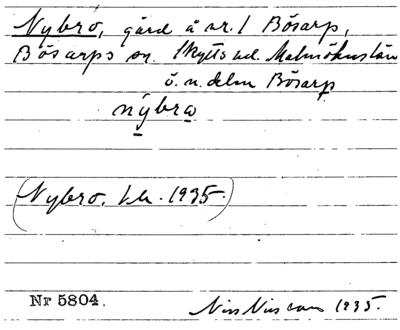 Nybro, gård å nr. 1 Bösarp,
Bösarps sn. Skytts hd. Malmöhus län
ö. n. delen Bösarp
nybro
(Nybro, 1935.)
Nr 5804.
Nils 1935.